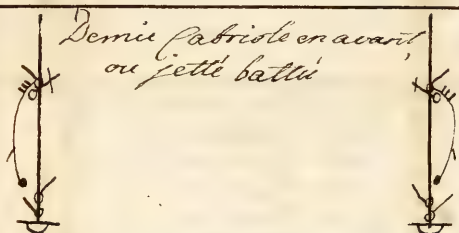 Demie Cabriole en avant,
ou jetté battu